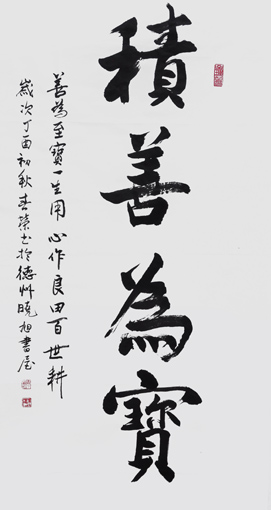 積善為寶
善為至寶一生用心作良田百世耕
歲次丁酉初秋春榮书於德州曉旭書屋